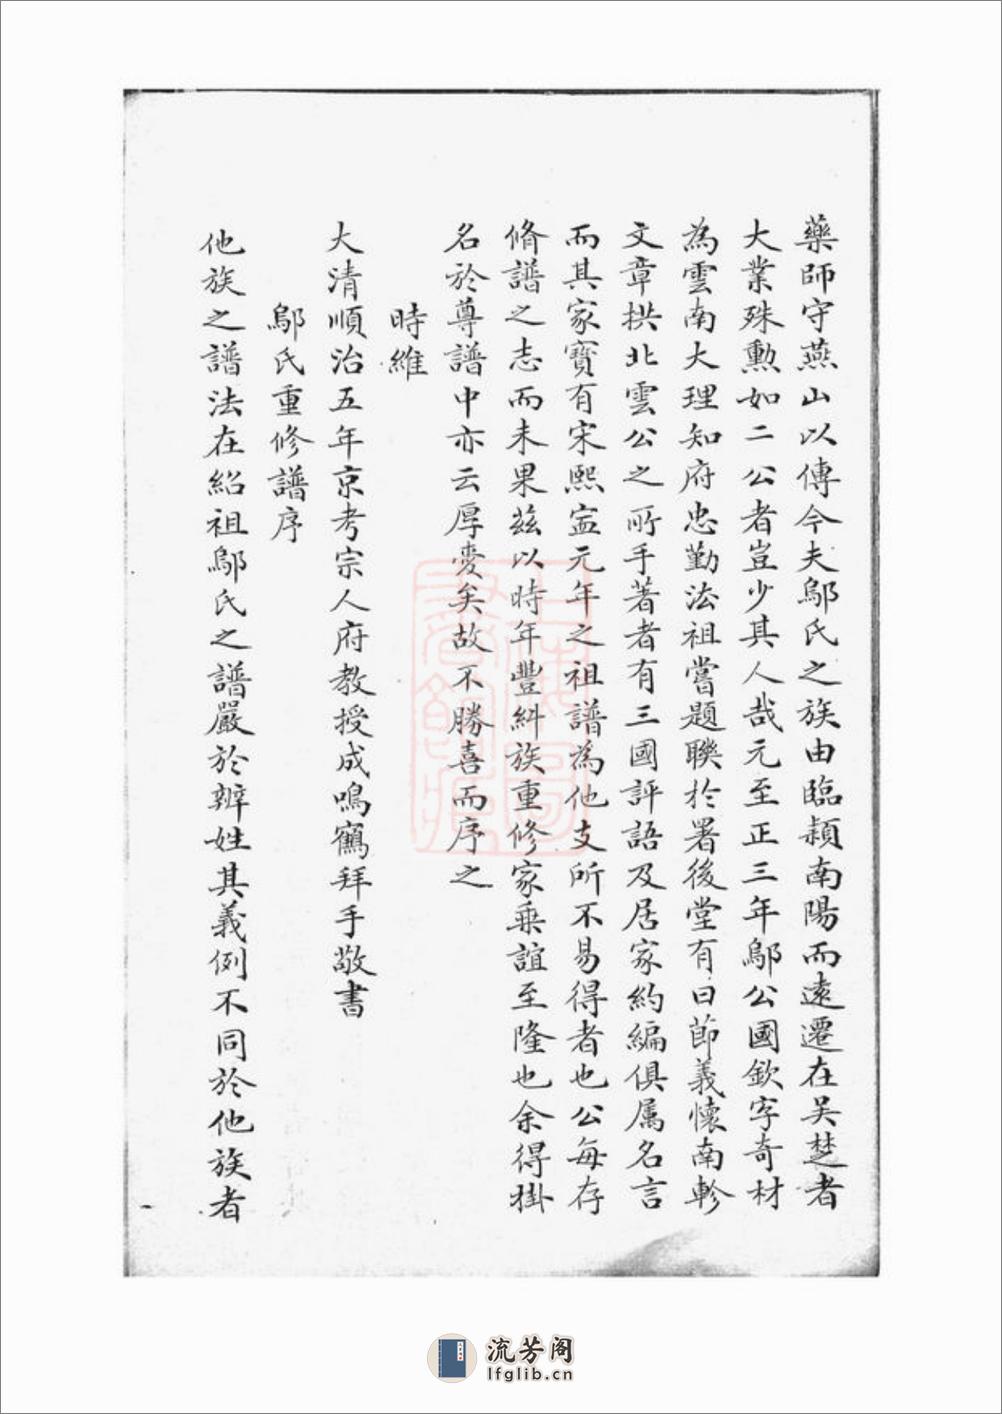 藥師守燕山以傳今夫鄔氏之族由臨潁南陽而遠遷在吳楚者
大業殊勳如二公者豈少其人哉元至正三年鄔公國欽字奇材
為雲南大理知府忠勤法祖嘗題聯於署後堂有曰節義懷南軫
文章拱北雲公之所手著者有三國評語及居家約編俱属名言
而其家寶有宋熙寍元年之祖譜為他支所不易得者也公每存
脩譜之志而未果茲以時年豐糾族重修家乘誼至隆也余得掛
名於尊譜中亦云厚愛矣故不勝喜而序之
時維
大清順治五年京考宗人府教授成鳴鶴拜手敬書
鄔氏重修譜序
他族之譜法在紹祖鄔氏之譜嚴於辨姓其義例不同於他族者
流芳阁
lfglib.cn